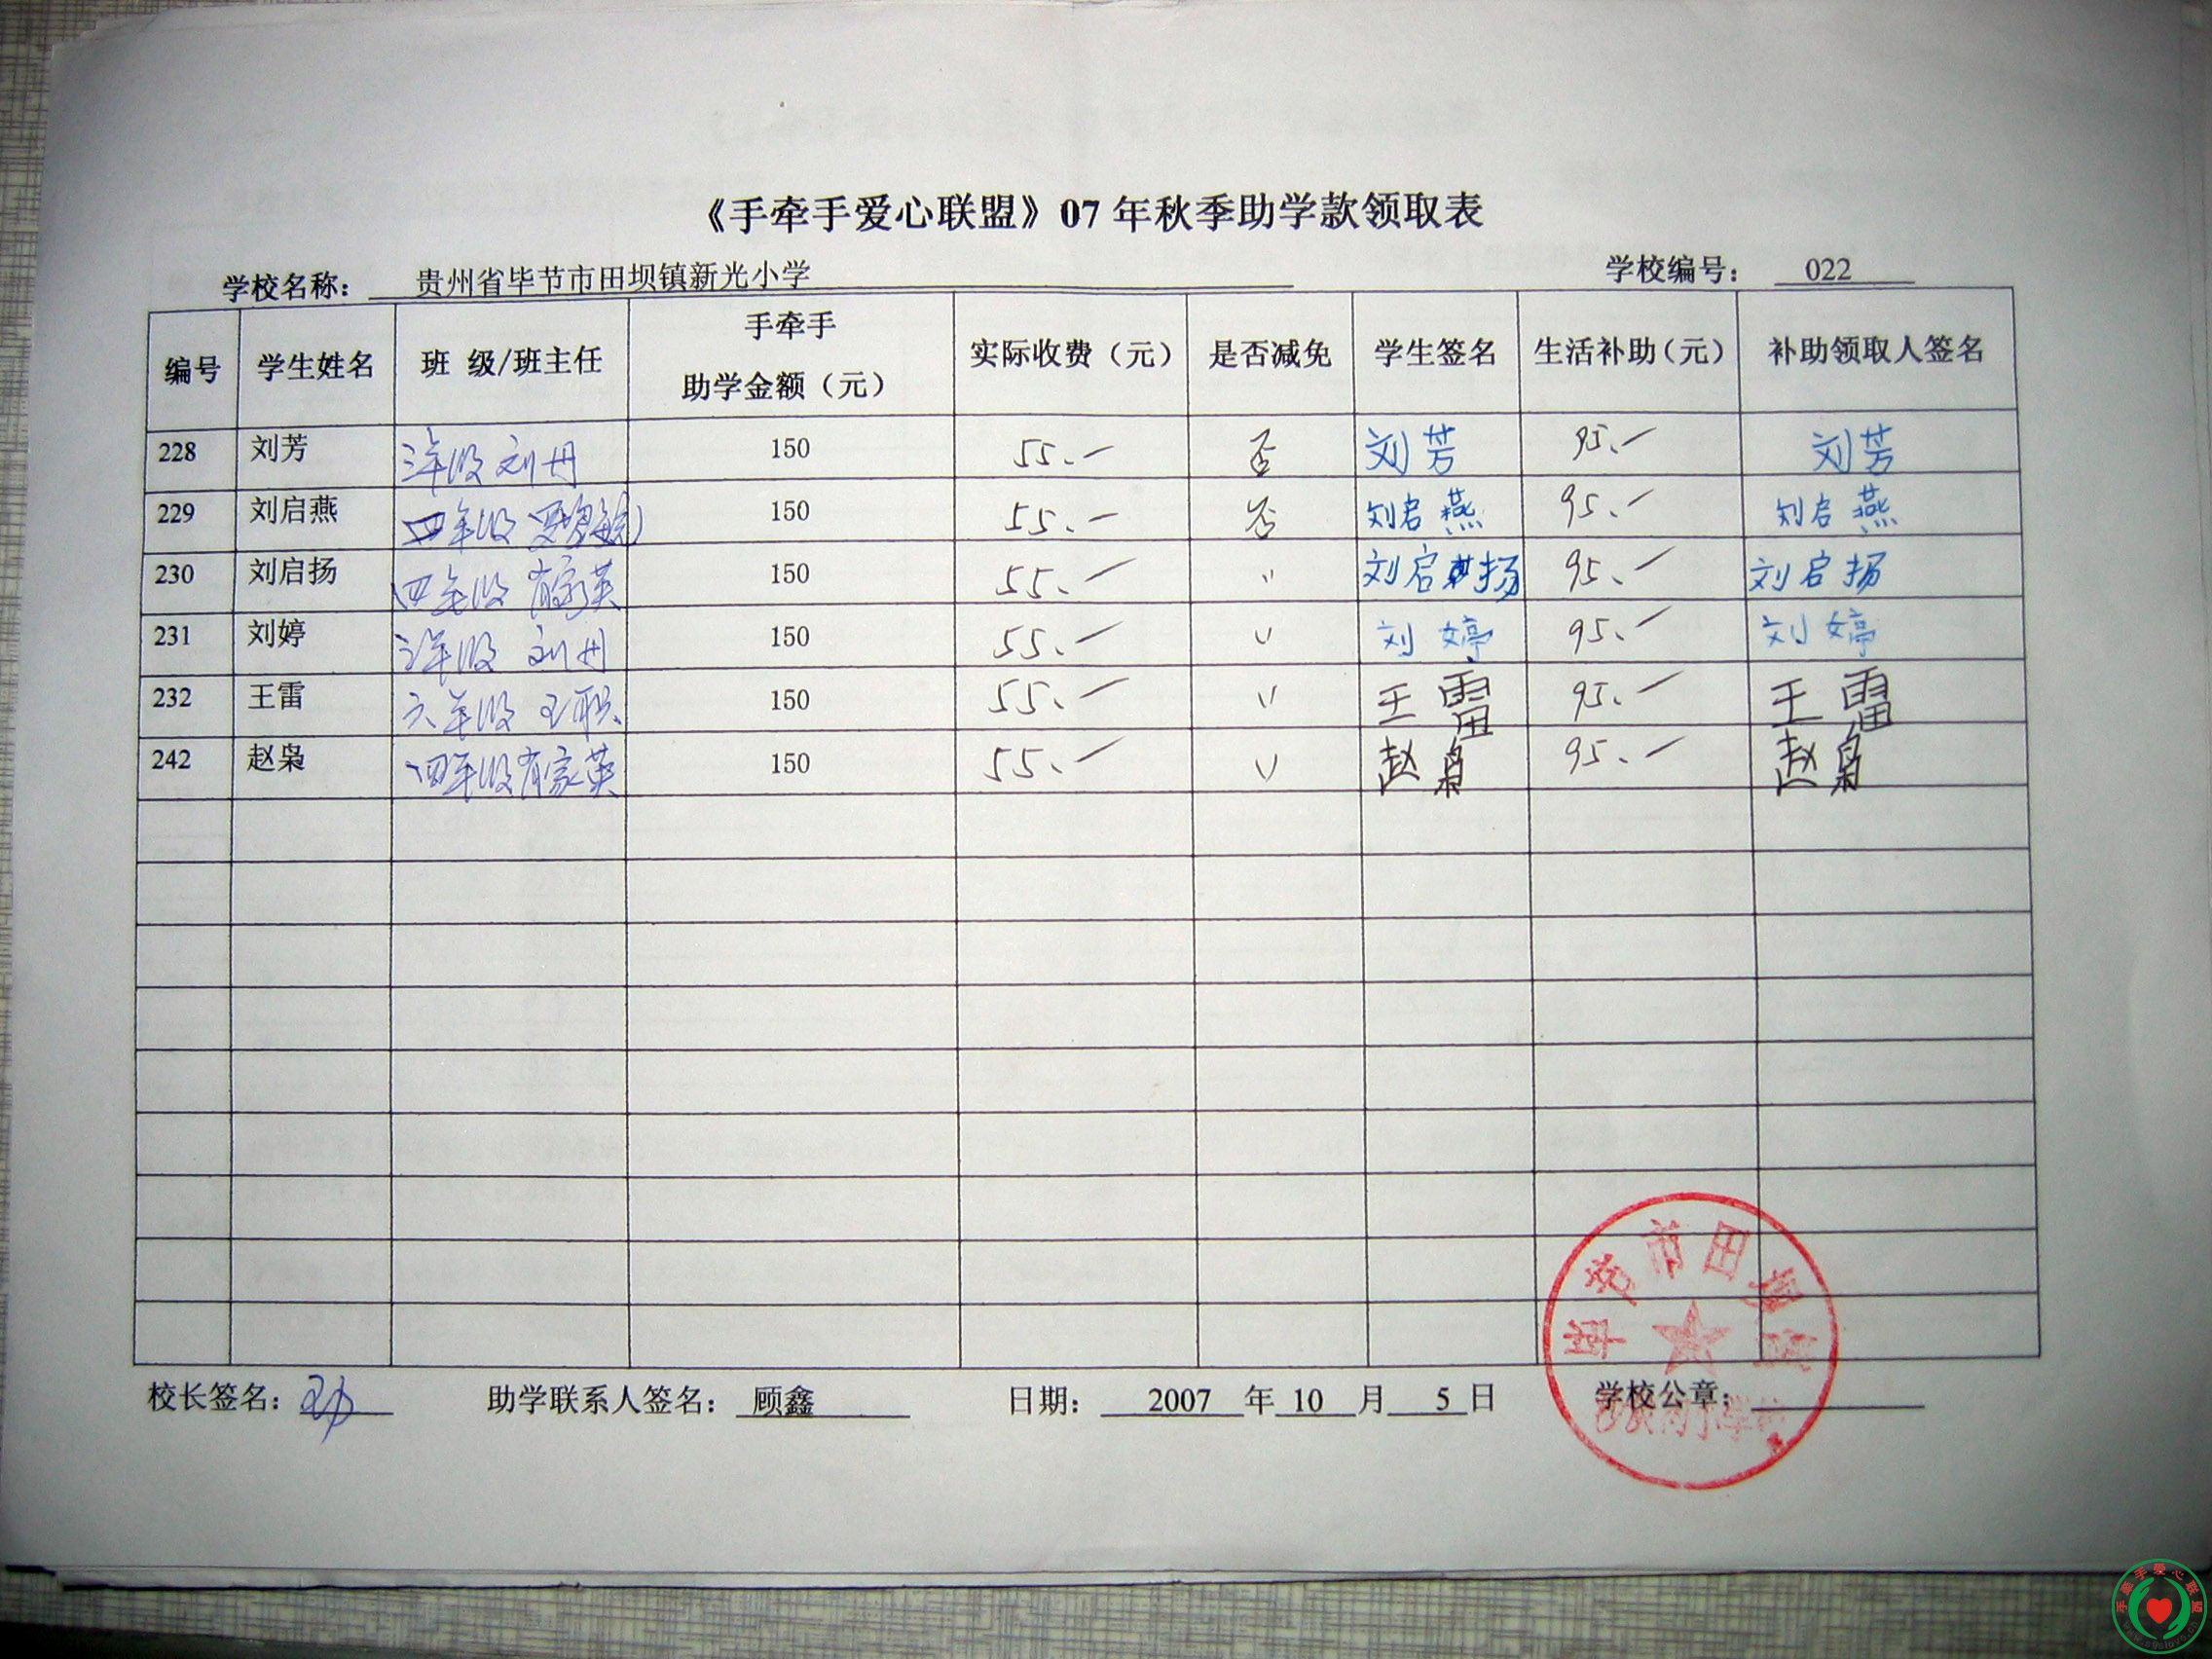 《手牵手爱心联盟》07年秋季助学款领取表
学校名称： 贵州省毕节市田坝镇新光小学 学校编号： 022
编号 学生姓名 班 级/班主任 手牵手助学金额（元） 实际收费（元） 是否减免 学生签名 生活补助（元） 补助领取人签名
228 刘芳 三年级 刘丹 150 55.— 否 刘芳 95.— 刘芳
229 刘启燕 四年级 150 55.— 否 刘启燕 95.— 刘启燕
230 刘启扬 四年级 150 55.— 〃 刘启扬 95.— 刘启扬
231 刘婷 三年级 刘丹 150 55.— 〃 刘婷 95.— 刘婷
232 王雷 六年级 150 55.— 〃 王雷 95.— 王雷
242 赵枭 四年级 150 55.— 〃 赵枭 95.— 赵枭
校长签名： 助学联系人签名： 顾鑫 日期： 2007 年 10 月 5 日 学校公章：
毕节市田坝镇
手牵手爱心联盟